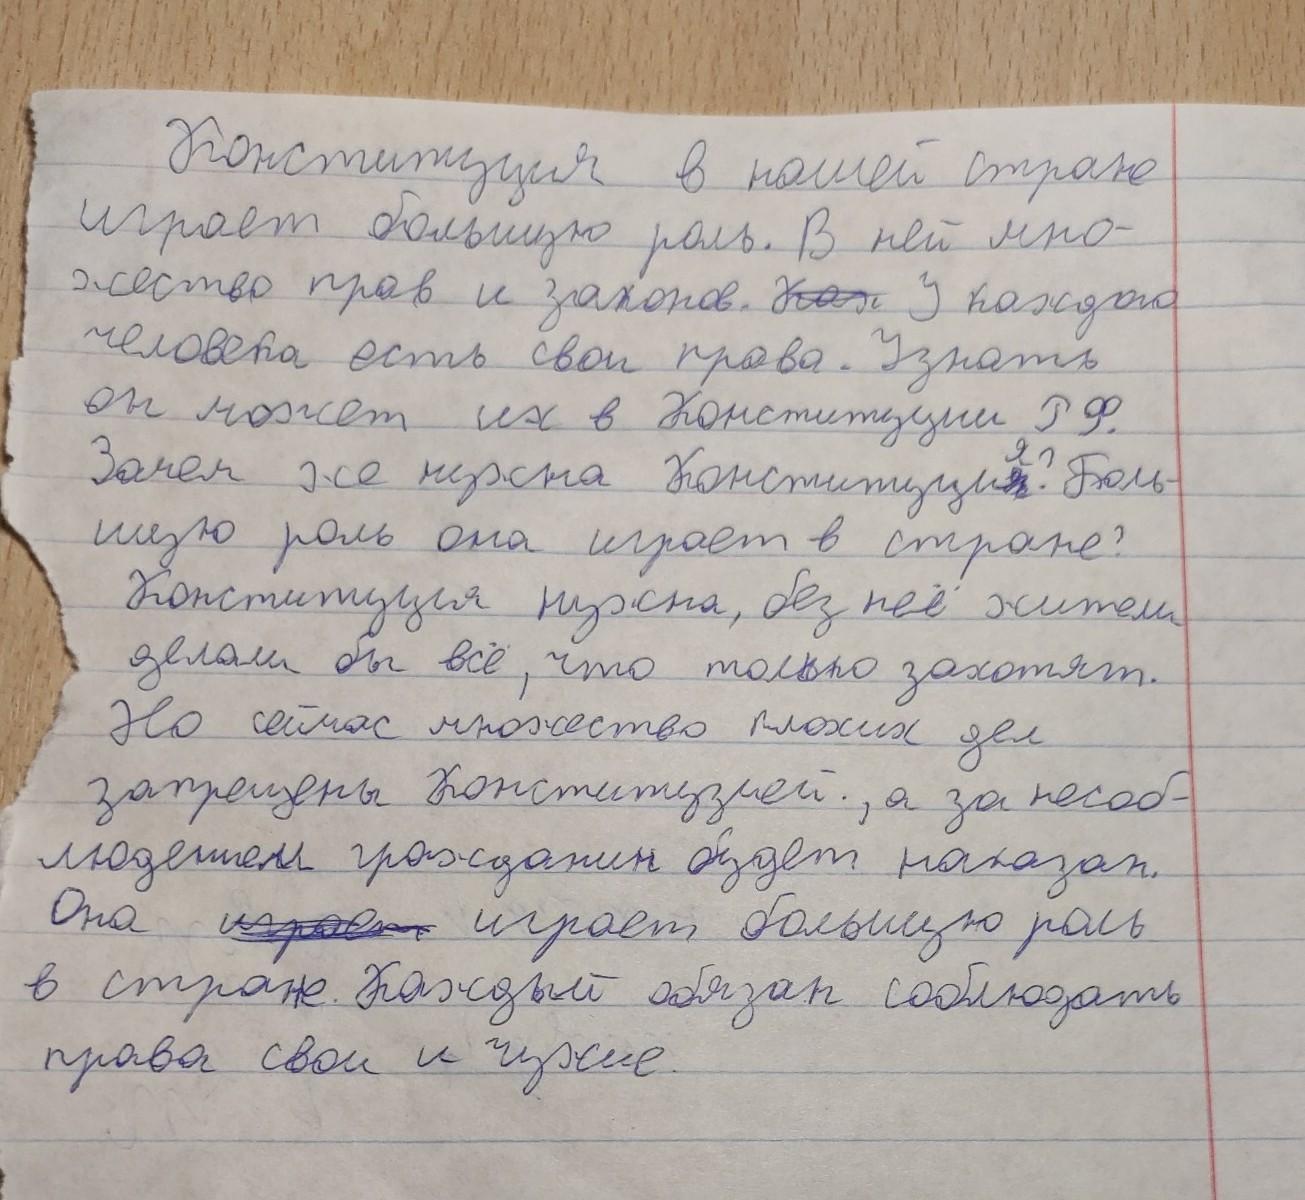 Конституция в нашей стране
играет большую роль. В ней мно-
жество прав и законов. У каждого
человека есть свои права. Узнать
он может их в Конституции РФ.
Зачем же нужна Конституция? Боль-
шую роль она играет в стране?
Конституция нужна, без неё жители
делали бы всё, что только захотят.
Но сейчас множество плохих дел
запрещены Конституцией., а за несоб-
людением гражданин будет наказан.
Она играет большую роль
в стране. Каждый обязан соблюдать
права свои и чужие.